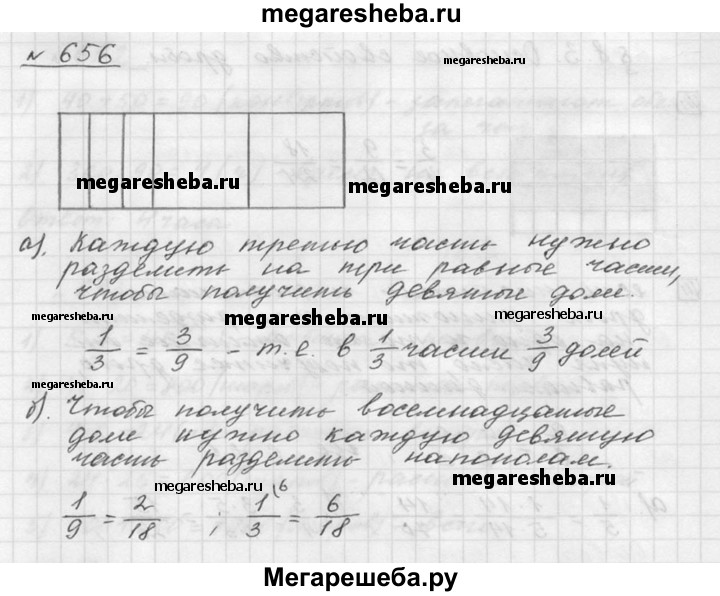 megaresheba.ru
№ 656
megaresheba.ru
megaresheba.ru
megaresheba.ru
megaresheba.ru
а). Каждую третью часть нужно
разделить на три равные части,
чтобы получить девятые доле.
megaresheba.ru
megaresheba.ru
megaresheba.ru
1/3 = 3/9 - т.е. в 1/3 части 3/9 долей
megaresheba.ru
б). Чтобы получить восемнадцатые
доле нужно каждую девятую
часть разделить напополам.
megaresheba.ru
megaresheba.ru
1/9 = 2/18 ; 1/3 (6 = 6/18
Мегарешеба.ру